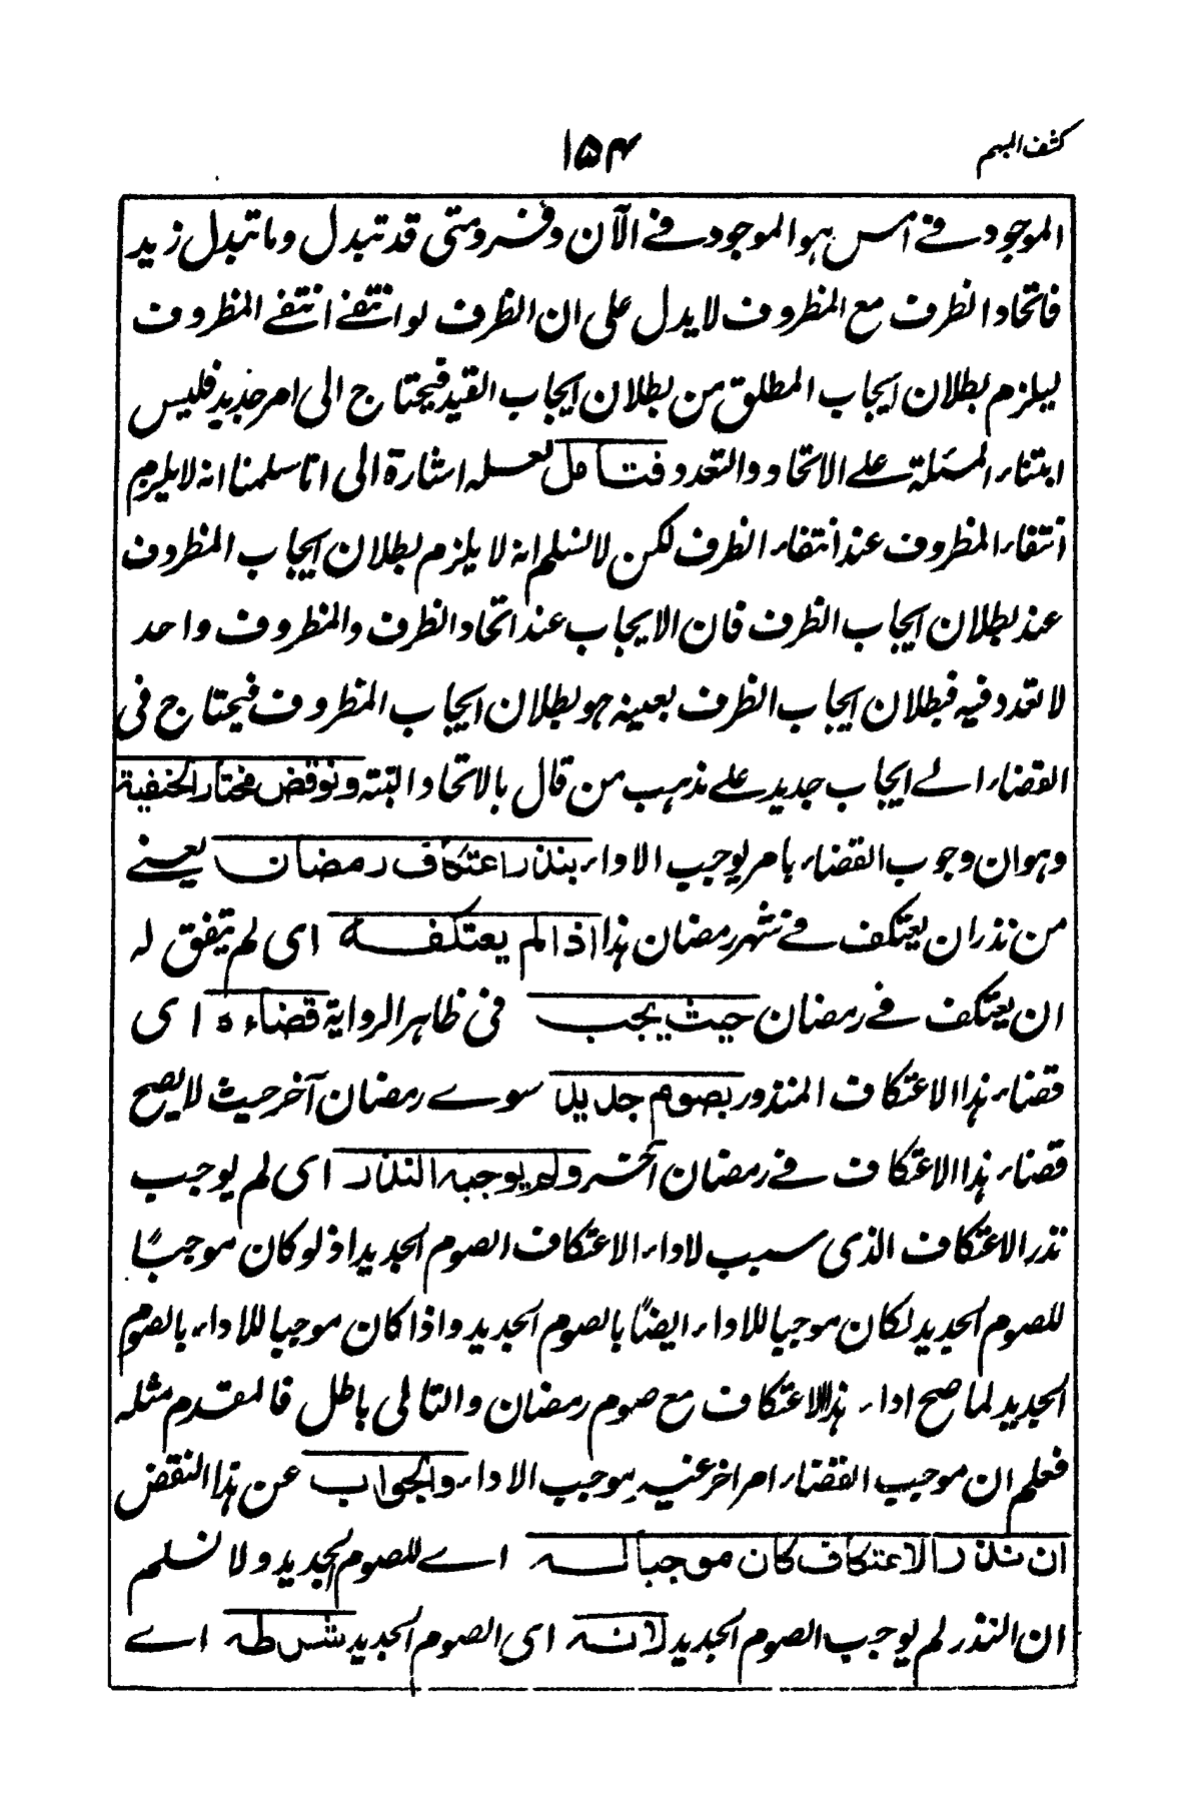 كشف المبهم
١٥٤
الموجود في امس هو الموجود في الآن وفرد متى قد تبدل وما تبدل زيد
فاتحاد الظرف مع المظروف لا يدل على ان الظرف لو انتفے انتفے المظروف
ليلزم بطلان ايجاب المطلق من بطلان ايجاب القيد فيحتاج الى امر جديد فليس
ابتناء المسئلة علے الاتحاد والتعدد فتامل لعله اشارة الى انا سلمنا انه لا يلزم
انتفاء المظروف عند انتفاء الظرف لكن لا نسلم انه لا يلزم بطلان ايجاب المظروف
عند بطلان ايجاب الظرف فان الايجاب عند اتحاد الظرف والمظروف واحد
لا تعدد فيه فبطلان ايجاب الظرف بعينه هو بطلان ايجاب المظروف فيحتاج فى
القضاء الے ايجاب جديد علے مذهب من قال بالاتحاد البتة ونوقض مختار الحنفية
وهو ان وجوب القضاء بامر يوجب الاداء بنذر اعتكاف رمضان يعنے
من نذر ان يعتكف في شهر رمضان هذا اذا لم يعتكفه اى لم يتفق له
ان يعتكف في رمضان حيث يجب فى ظاهر الرواية قضاءه اى
قضاء هذا الاعتكاف المنذور بصوم جديد سوے رمضان آخر حيث لا يصح
قضاء هذا الاعتكاف في رمضان آخر ولم يوجبه النذر اى لم يوجب
نذر الاعتكاف الذى سبب لاداء الاعتكاف الصوم الجديد اذ لو كان موجبًا
للصوم الجديد لكان موجبا للاداء ايضًا بالصوم الجديد واذا كان موجبا للاداء بالصوم
الجديد لما صح اداء هذا الاعتكاف مع صوم رمضان والتالى باطل فالمقدم مثله
فعلم ان موجب القضاء امر اخر غير موجب الاداء والجواب عن هذا النقض
ان نذر الاعتكاف كان موجبا له اے للصوم الجديد ولا نسلم
ان النذر لم يوجب الصوم الجديد لانه اى الصوم الجديد شرطه اے